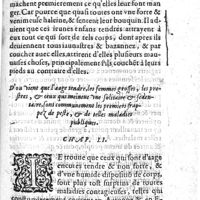 machent premierement ce qu'elles leur font man
ger. Car pource que quasi toutes ont vne forte &
venimeuse haleine, & sentent leur bouquin. Il ad-
uient que ces ieunes enfans tendrés attrayent à
eux tout ce qui sort de tels corps, dont apres ils
deuiennent tousiours
& bazanez, & par
couchet auec elles attirent d'elles plusieurs mau-
uaises choses, principalement s'ils couchét à leurs
pieds au contraire d'elles.
D'où vient que l'aage tendre, les femmes grosses, les pre-
stres, & ceux qui meinent vne solitaire & seden-
taire, sont communement les premiers frap-
pez de peste, & de telles maladies
publiques.
CHAP. LI.
IL se trouue que ceux qui sont d'aage
encores tendre & non forte, &
d'vne humide disposition de corps,
sont plus tost surprins de toutes
maladies contagieuses, telles qui